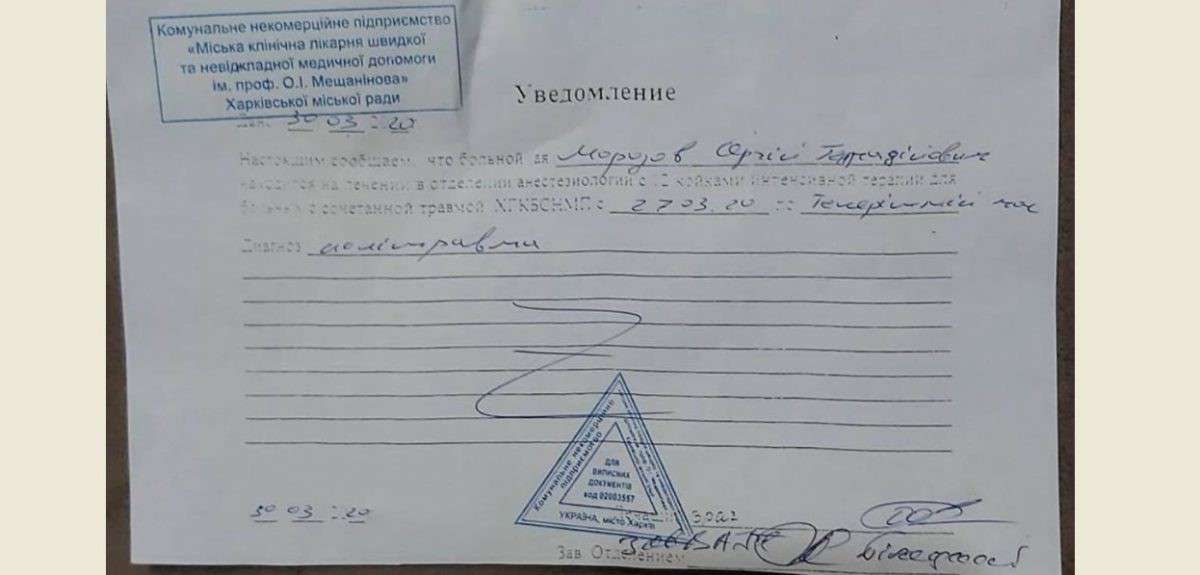 Комунальне некомерційне підприємство
«Міська клінічна лікарня швидкої
та невідкладної медичної допомоги
ім. проф. О.І. Мещанінова»
Харківської міської ради
Уведомление
30 03 20
Настоящим сообщаем, что больной ая Морозов Сергій
находится на лечении в отделении анестезиологии с 12 койками интенсивной терапии для
больных с сочетанной травмой ХГКБСНМП с 27 03. 20 по теперішній час
Диагноз політравма
Комунальне некомерційне
підприємство
ДЛЯ
ВИПИСНИХ
ДОКУМЕНТІВ
код 02003557
УКРАЇНА, місто Харків
30 03 20
врач
Зав. Отделением